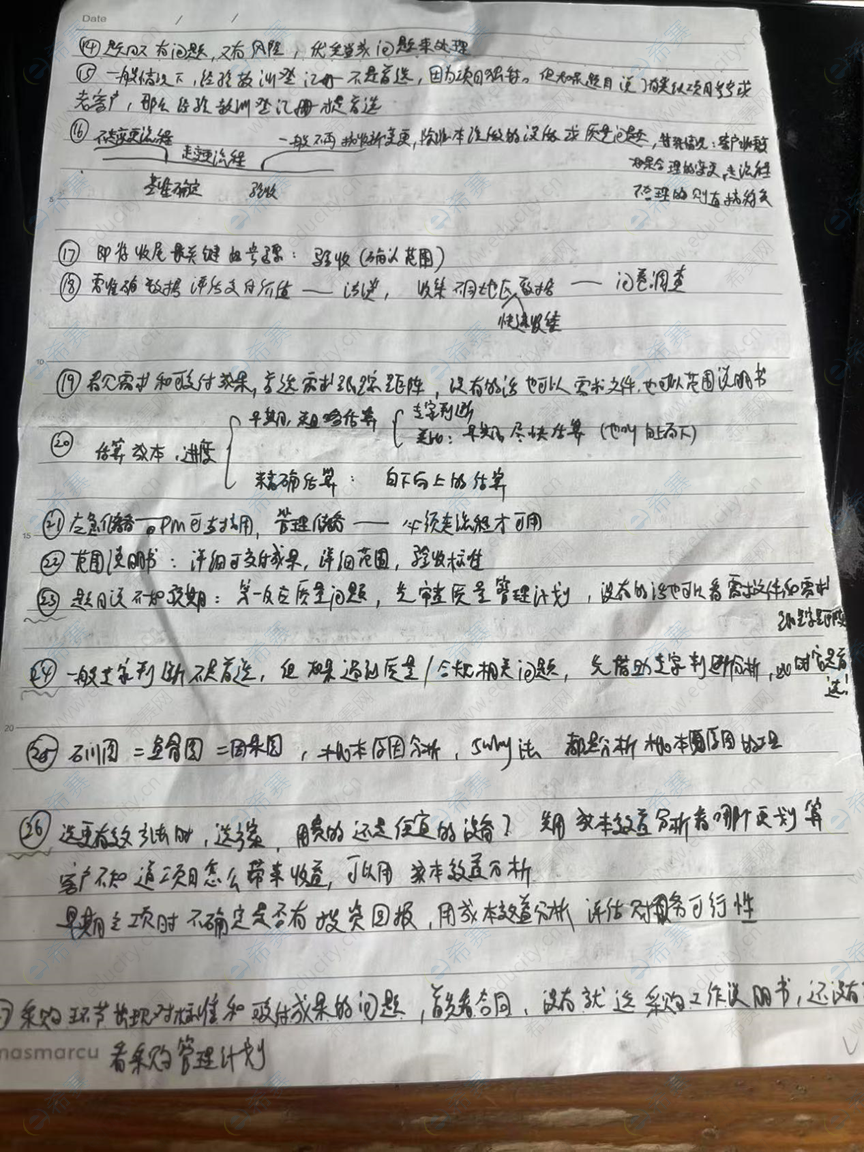 Date / /
⑭ 题目又有问题，又有风险，优先当成问题来处理
⑮ 一般情况下，经验教训登记册不是首选，因为项目独特。但如果题目说了有类似项目参考或
老客户，那么经验教训登记册才是首选
⑯ 不走变更流程 一般不再接收新变更，除非本该做的没做或质量问题，特殊情况：客户收到
走变更流程 如果合理的变更，走流程
基准确定 验收 不合理的则直接拒绝
⑰ 即将收尾最关键的步骤：验收（确认范围）
⑱ 需准确数据评估支付价值 —— 法，收集不同地区数据 —— 问卷调查
快速收集
⑲ 看见需求和可交付成果，首选需求跟踪矩阵，没有的话也可以需求文件，也可以范围说明书
⑳ 估算成本，进度 早期，粗略估算 专家判断
类比：早期尽快估算（也叫自上而下）
精确估算： 自下向上的估算
㉑ 应急储备—PM可支用，管理储备 —— 必须走流程才可用
㉒ 范围说明书：详细可交付成果，详细范围，验收标准
㉓ 题目说不如预期：第一反应质量问题，先审查质量管理计划，没有的话也可以看需求文件和需求
跟踪矩阵
㉔ 一般专家判断不是首选，但如果遇到质量/合规相关问题，先借助专家判断分析，此时它是首
选！
㉕ 石川图=鱼骨图=因果图，根本原因分析，5why法 都是分析根本原因的工具
㉖ 选更有效方法时，选方案，用贵的还是便宜的设备？先用成本效益分析看哪个更划算
客户不知道这项目怎么带来收益，可以用成本效益分析
早期立项时不确定是否有投资回报，用成本效益分析评估财务可行性
采购环节出现对标准和可交付成果的问题，首先看合同，没有就选采购工作说明书，还没有
看采购管理计划
nasmarcu